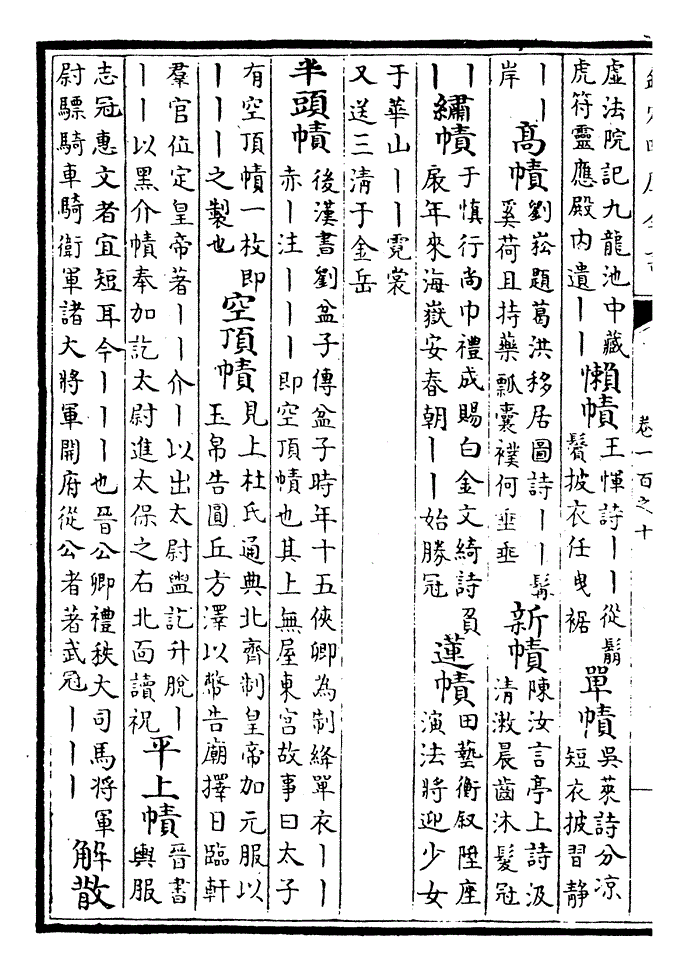 欽定四庫全書
卷一百之十
虛法院記九龍池中藏
虎符靈應殿內遺丨丨
懶幘
王惲詩丨丨從鬅
鬢披衣任曳裾
單幘
吳萊詩分凉
短衣披習靜
丨丨
岸
高幘
劉崧題葛洪移居圖詩丨丨髯
奚荷且持藥瓢囊襆何垂垂
新幘
陳汝言亭上詩汲
清漱晨齒沐髮冠
丨
丨
繡幘
于慎行尚巾禮成賜白金文綺詩貟
扆年來海嶽安春朝丨丨始勝冠
蓮幘
田藝衡叙陞座
演法將迎少女
于華山丨丨霓裳
又送三清于金岳
半頭幘
後漢書劉盆子傳盆子時年十五俠卿為制絳單衣丨丨
赤丨注丨丨丨即空頂幘也其上無屋東宮故事曰太子
有空頂幘一枚即
丨丨丨之製也
空頂幘
見上杜氏通典北齊制皇帝加元服以
玉帛告圓丘方澤以幣告廟擇日臨軒
羣官位定皇帝著丨丨介丨以出太尉盥訖升脫丨
丨丨以黑介幘奉加訖太尉進太保之右北面讀祝
平上幘
晉書
輿服
志冠惠文者宜短耳今丨丨丨也晉公卿禮秩大司馬將軍
尉驃騎車騎衛軍諸大將軍開府從公者著武冠丨丨丨
解散